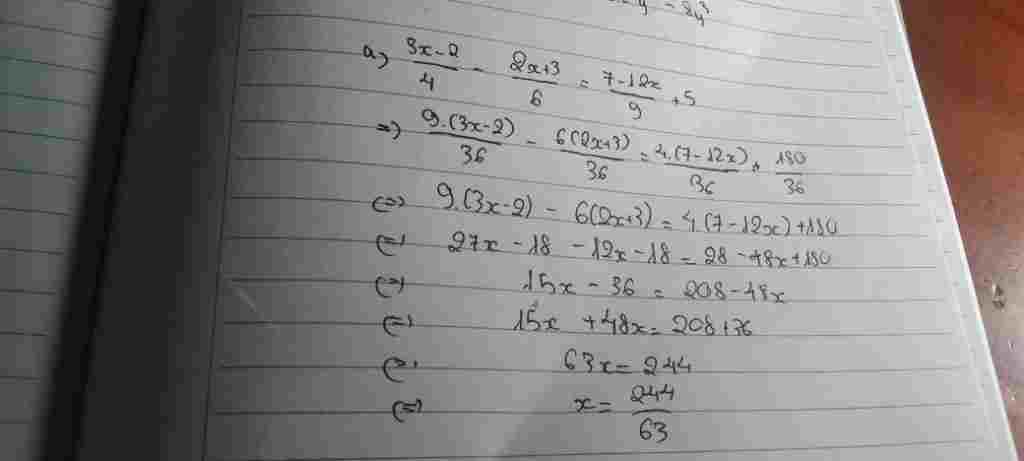 a) \frac{3x-2}{4} - \frac{2x+3}{6} = \frac{7-12x}{9} + 5
=) \frac{9.(3x-2)}{36} - \frac{6(2x+3)}{36} = \frac{4.(7-12x)}{36} + \frac{180}{36}
(=) 9.(3x-2) - 6(2x+3) = 4.(7-12x)+180
(=) 27x - 18 - 12x - 18 = 28 - 48x + 180
(=) 15x - 36 = 208 - 48x
(=) 15x + 48x = 208 + 36
(=) 63x = 244
(=) x = \frac{244}{63}